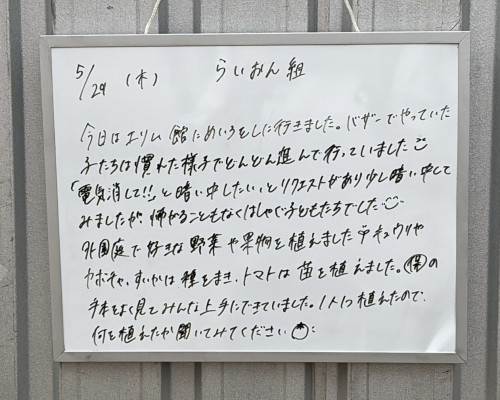 5/29 (木) らいおん組
今日はエリム館にめいろをしに行きました。バザーでやっていた
子たちは慣れた様子でどんどん進んで行っていました
「電気消して!!」と暗い中したい、とリクエストがあり少し暗い中して
みましたが、怖がることもなくはしゃぐ子どもたちでした
外園庭で好きな野菜や果物を植えました キュウリや
カボチャ、すいかは種をまき、トマトは苗を植えました。(保)の
手本をよく見てみんな上手にできていました。1人1つ植えたので、
何を植えたか聞いてみてください